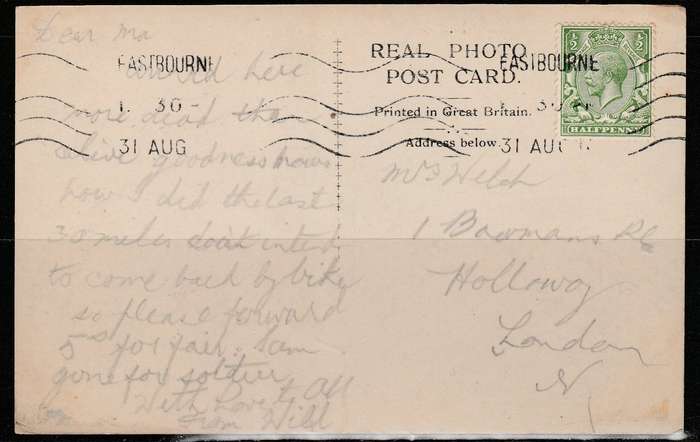 Dear Ma
arrived here
more dead than
alive goodness knows
how I did the last
30 miles dont intend
to come back by bike
so please forward
5/- for fair. Sam
gone for soldier
With Love to All
From Will
EASTBOURNE
1. 30 -
31 AUG
REAL PHOTO
POST CARD.
Printed in Great Britain.
Address below.
EASTBOURNE
1. 30
31 AUG
½ ½
HALFPENNY
Mrs Welch
1 Bowmans Rd
Holloway
London
N